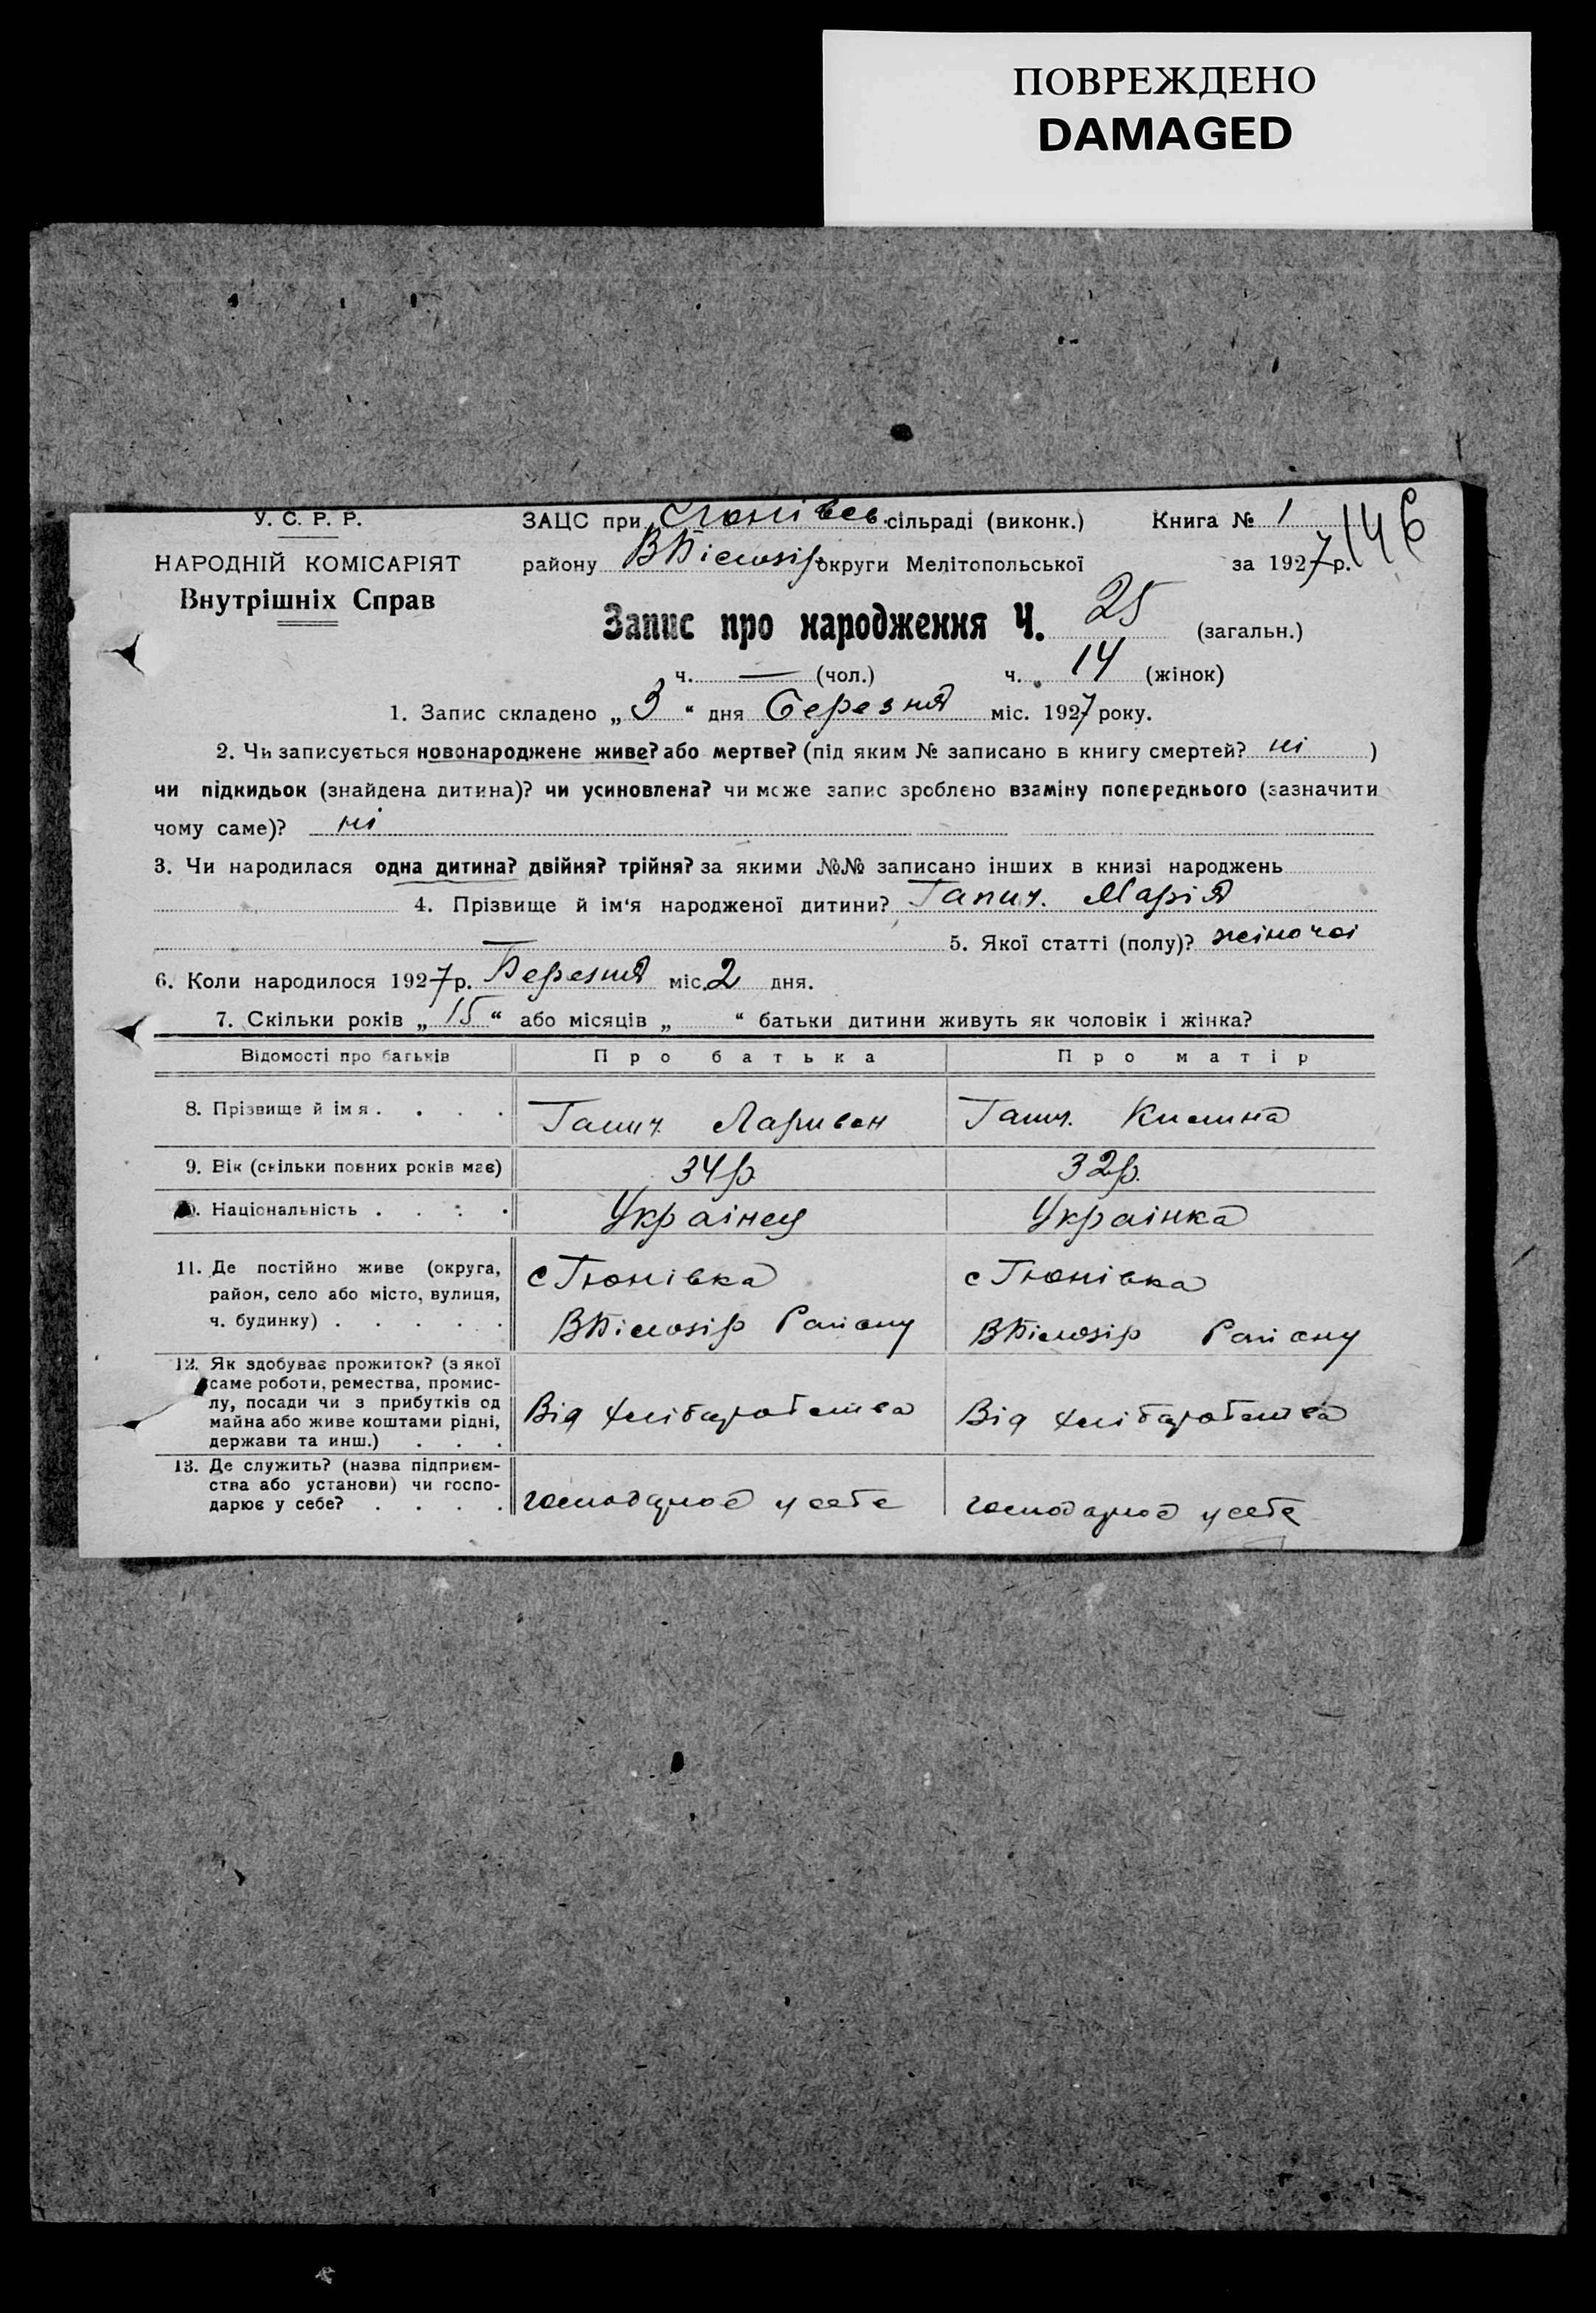 ПОВРЕЖДЕНО
DAMAGED
У. С. Р. Р.
НАРОДНІЙ КОМІСАРІЯТ
Внутрішніх Справ
ЗАЦС при сільраді (виконк.) Книга № 1 146
району ВБілозір округи Мелітопольської за 1927 р.
Запис про народження Ч. 25 (загальн.)
ч. — (чол.) ч. 14 (жінок)
1. Запис складено „ 3 “ дня березня міс. 1927 року.
2. Чи записується новонароджене живе? або мертве? (під яким № записано в книгу смертей? ні )
чи підкидьок (знайдена дитина)? чи усиновлена? чи може запис зроблено взаміну попереднього (зазначити
чому саме)? ні
3. Чи народилася одна дитина? двійня? трійня? за якими №№ записано інших в книзі народжень
4. Прізвище й ім'я народженої дитини? Гапич. Марія
5. Якої статті (полу)? жіночоі
6. Коли народилося 1927 р. Березня міс. 2 дня.
7. Скільки років „ 15 “ або місяців „ “ батьки дитини живуть як чоловік і жінка?
Відомості про батьків Про батька Про матір
8. Прізвище й імя . . . . Гапич Ларивон Гапич. Килина
9. Вік (скільки повних років має) 34 р 32 р.
10. Національність . . . . Украінець Украінка
11. Де постійно живе (округа, район, село або місто, вулиця, ч. будинку) . . . . . с Гюнівка с Гюнівка
ВБілозір Району ВБілозір Району
12. Як здобуває прожиток? (з якої
саме роботи, ремества, промис-
лу, посади чи з прибутків од
майна або живе коштами рідні,
держави та инш.) . . . Від хліборобства Від хліборобства
13. Де служить? (назва підприєм-
ства або установи) чи госпо-
дарює у себе? . . . . господарює у себе господарює у себе